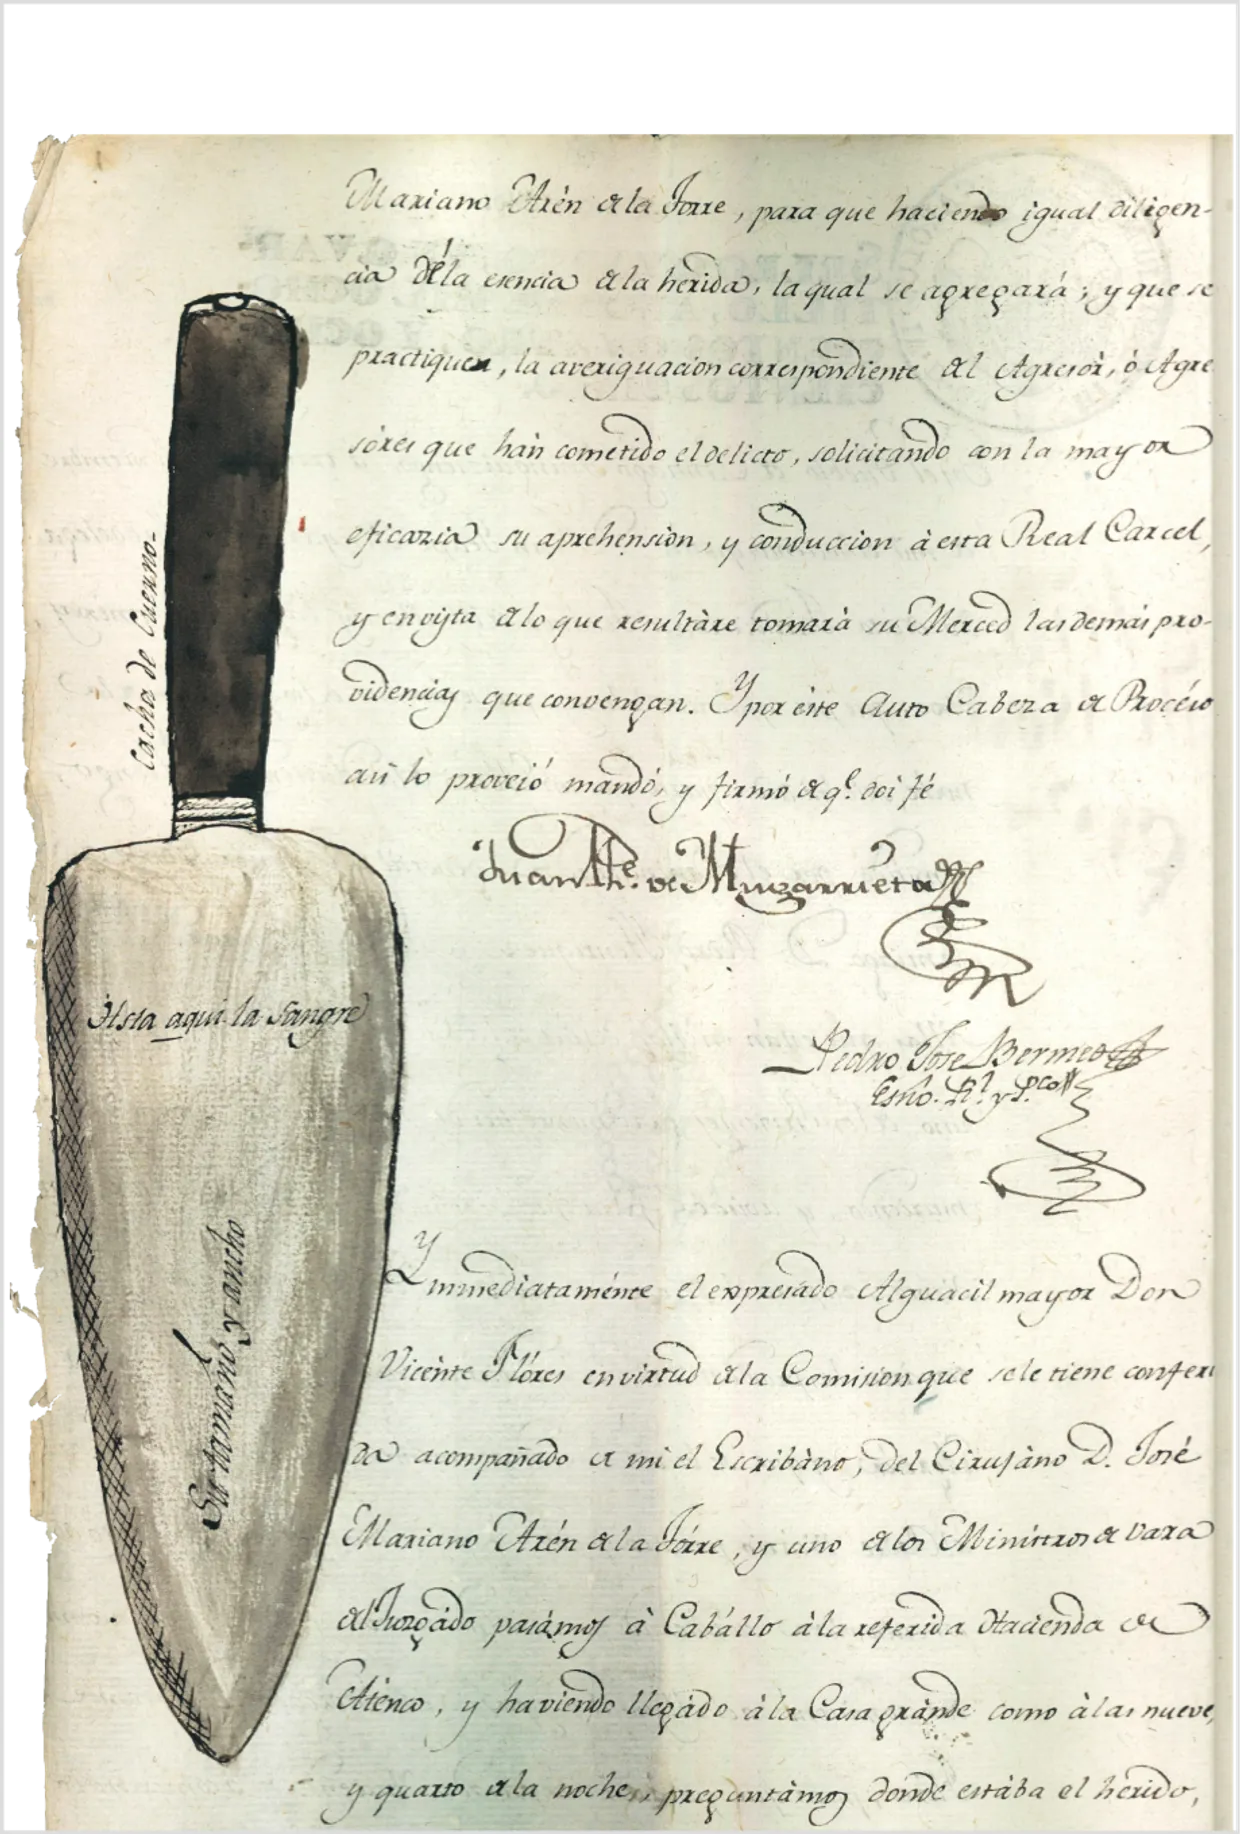 Mariano Arén de la Torre, para que haciendo igual diligen-
cia de la esencia de la herida, la qual se agregará; y que se
practiquen, la averiguacion correspondiente del Agresòr, ò Agre
sòres que hàn cometido el delicto, solicitando con la mayor
eficazia su aprehensiòn, y conduccion à esta Real Carcel,
y en vista de lo que resultàre tomarà su Merced las demàs pro-
videncias que convengan. Y por èste Auto Cabeza de Procéso
asi lo proveió mandó, y firmó de q.e doi fé
Juan Ph.e de Muzarrieta
Pedro Jose Bermeo
Esño. R.l y P.co
Cacha de Cuerno.
Asta aqui la Sangre
Su tamaño y ancho
Ymmediataménte el expresado Alguacil mayor Don
Vicènte Flóres en virtud de la Comision que se le tiene conferi
da acompañado de mi el Escribàno, del Cirujàno D. José
Mariano Arén de la Tórre, y uno de los Minístros de Vara
del Juzgàdo pasàmos à Cabállo à la referida Hacienda de
Atenco, y haviendo llegàdo à la Casa grànde como à las nueve,
y quarto de la noche, preguntàmos dònde estàba el hèrido,